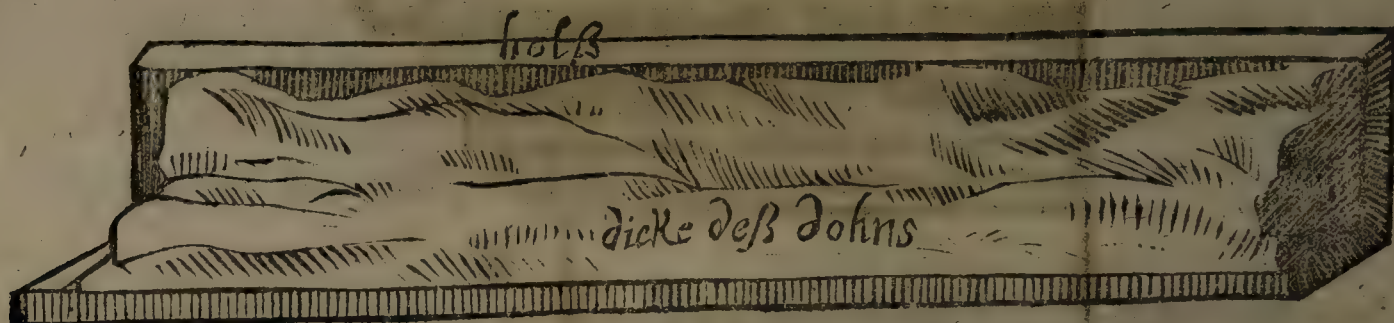 holß
dicke deß dohns